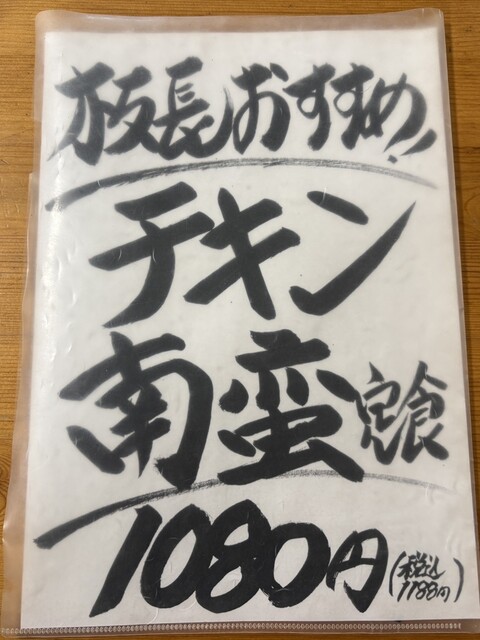 板長おすすめ!
チキン
南蛮定食
1080円(税込
1188円)